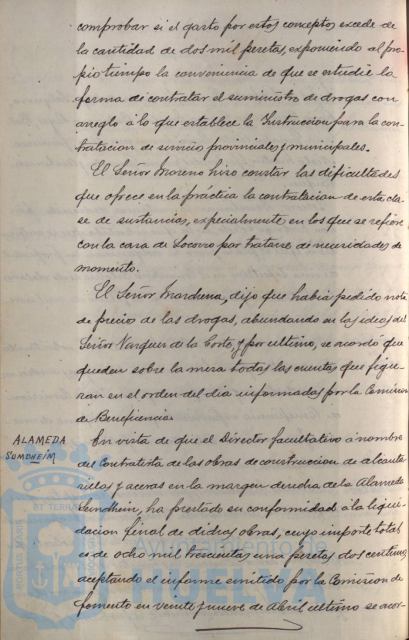 comprobar si el gasto por estos conceptos excede de
la cantidad de dos mil pesetas, exponiendo al pro-
pio tiempo la conveniencia de que se estudie la
forma de contratar el suministro de drogas con
arreglo á lo que establece la Instruccion para la con-
tratacion de servicios provinciales y municipales.
El Señor Moreno hizo constar las dificultades
que ofrece en la práctica la contratacion de esta cla-
se de sustancias, especialmente en los que se refiere
con la casa de Socorro por tratarse de necesidades de
momento.
El Señor Marchena, dijo que habia pedido nota
de precios de las drogas, abundando en las ideas del
Señor Vazquez de la Corte, y por ultimo, se acordó que
queden sobre la mesa todas las cuentas que figu-
ran en el orden del dia informadas por la Comision
de Beneficencia.
ALAMEDA
SUMDHEIM
En vista de que el Director facultativo á nombre
del Contratista de las obras de construccion de alcanta-
rillas y aceras en la margen derecha de la Alameda
Sundheim, ha prestado su conformidad á la liqui-
dacion final de dichas obras, cuyo importe total
es de ocho mil trescientas una pesetas dos centimos,
aceptando el informe emitido por la Comision de
fomento en veinte y nueve de Abril ultimo se acor-
PORTUS MARIS
ET TERRAE
HUELVA